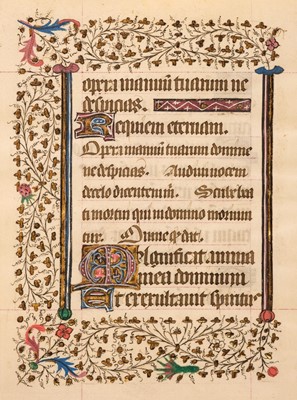 opera manuū tuarum ne
despicias.
Requiem eternam.
Opera manuum tuarum domine
ne despicias. Audiui uocem
de celo dicentem. Scribe bea
ti mortui qui in domino moriun
tur. Omne q̄ dat.
Magnificat anima
mea dominum
Et exultauit spiritus